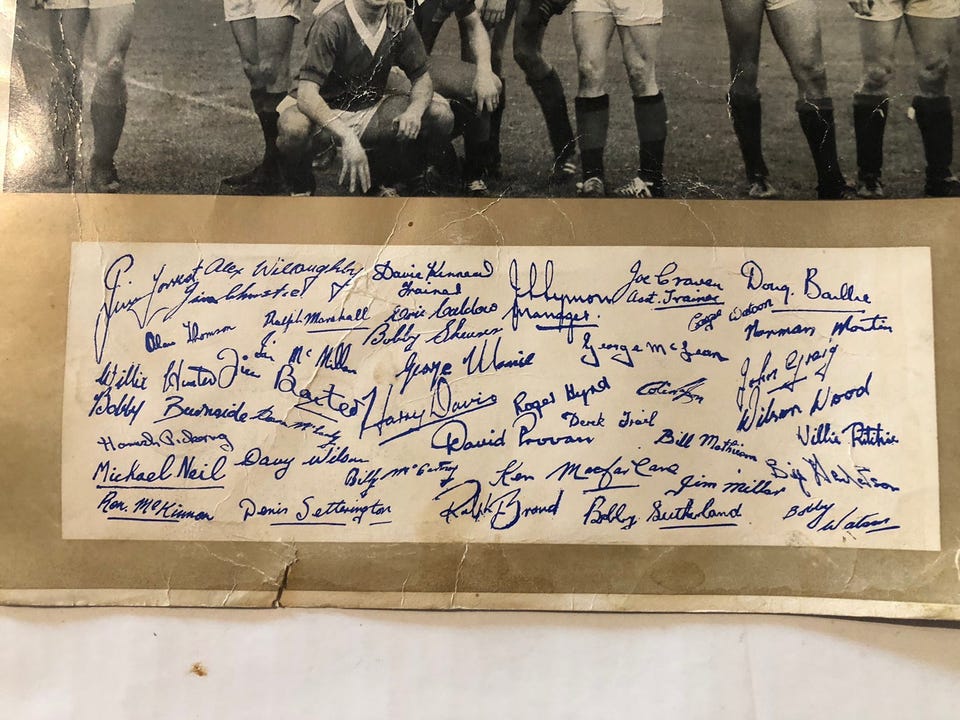 Jim Forrest Alex Willoughby Davie Kinnear J S Symon Joe Craven Doug. Baillie
Jim Christie Trainer Manager. Asst. Trainer
Alan Thomson Ralph Marshall Eric Caldow Watson Norman Martin
Bobby Shearer
Willie Hunter Jim Baxter Ian McMillan George McLean John Greig
George
Bobby Burnside Harry Davis Roger Hynd Wilson Wood
David Provan Derek Trail Willie Ritchie
Michael Neil Davy Wilson Bill Mathieson
Billy Ken Macfarlane Jim Millar
Ron. McKinnon Denis Setterington Ralph Brand Bobby Sutherland Bobby Watson